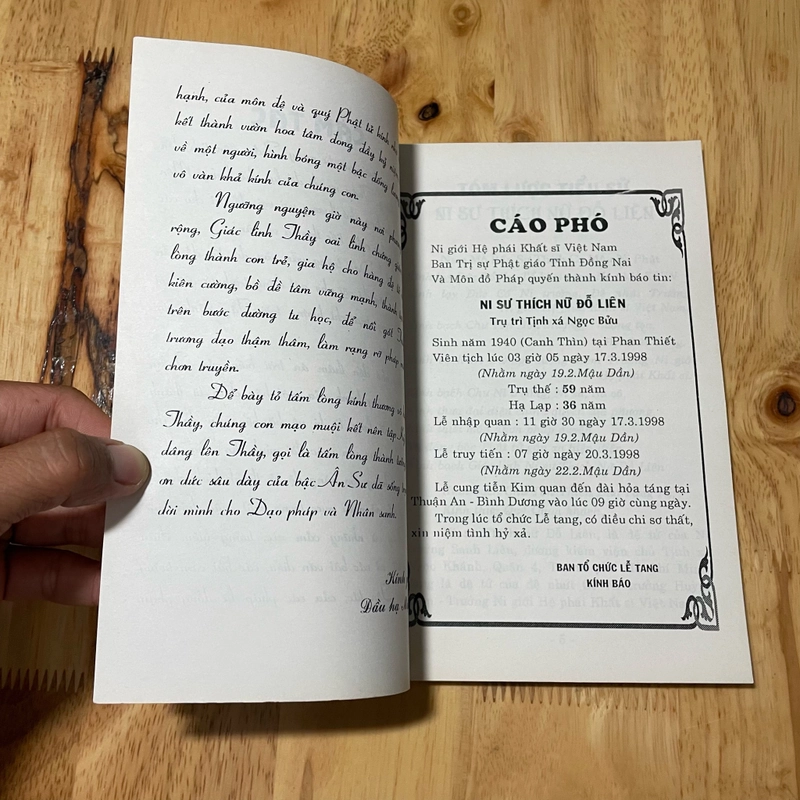 hạnh, của môn đệ và quý Phật tử kính
kết thành vườn hoa tâm đong đầy kỷ
về một người, hình bóng một bậc đấng
vô vàn khả kính của chúng con.
Ngưỡng nguyện giờ này nơi
rộng, Giác linh Thầy oai linh chứng
lòng thành con trẻ, gia hộ cho hàng đệ
kiên cường, bồ đề tâm vững mạnh, thành
trên bước đường tu học, để nối gót
trương đạo thậm thâm, làm rạng rỡ pháp
chơn truyền.
Để bày tỏ tấm lòng kính thương
Thầy, chúng con mạo muội kết nên tập
dáng lên Thầy, gọi là tấm lòng thành
ơn đức sâu dày của bậc Ân Sư đã sống
đời mình cho Đạo pháp và Nhân sanh.
Kính
Đầu hạ
CÁO PHÓ
Ni giới Hệ phái Khất sĩ Việt Nam
Ban Trị sự Phật giáo Tỉnh Đồng Nai
Và Môn đồ Pháp quyến thành kính báo tin:
NI SƯ THÍCH NỮ ĐỖ LIÊN
Trụ trì Tịnh xá Ngọc Bửu
Sinh năm 1940 (Canh Thìn) tại Phan Thiết
Viên tịch lúc 03 giờ 05 ngày 17.3.1998
(Nhằm ngày 19.2.Mậu Dần)
Trụ thế : 59 năm
Hạ Lạp : 36 năm
Lễ nhập quan : 11 giờ 30 ngày 17.3.1998
(Nhằm ngày 19.2.Mậu Dần)
Lễ truy tiến : 07 giờ ngày 20.3.1998
(Nhằm ngày 22.2.Mậu Dần)
Lễ cung tiễn Kim quan đến đài hỏa táng tại
Thuận An - Bình Dương vào lúc 09 giờ cùng ngày.
Trong lúc tổ chức Lễ tang, có điều chi sơ thất,
xin niệm tình hỷ xả.
BAN TỔ CHỨC LỄ TANG
KÍNH BÁO